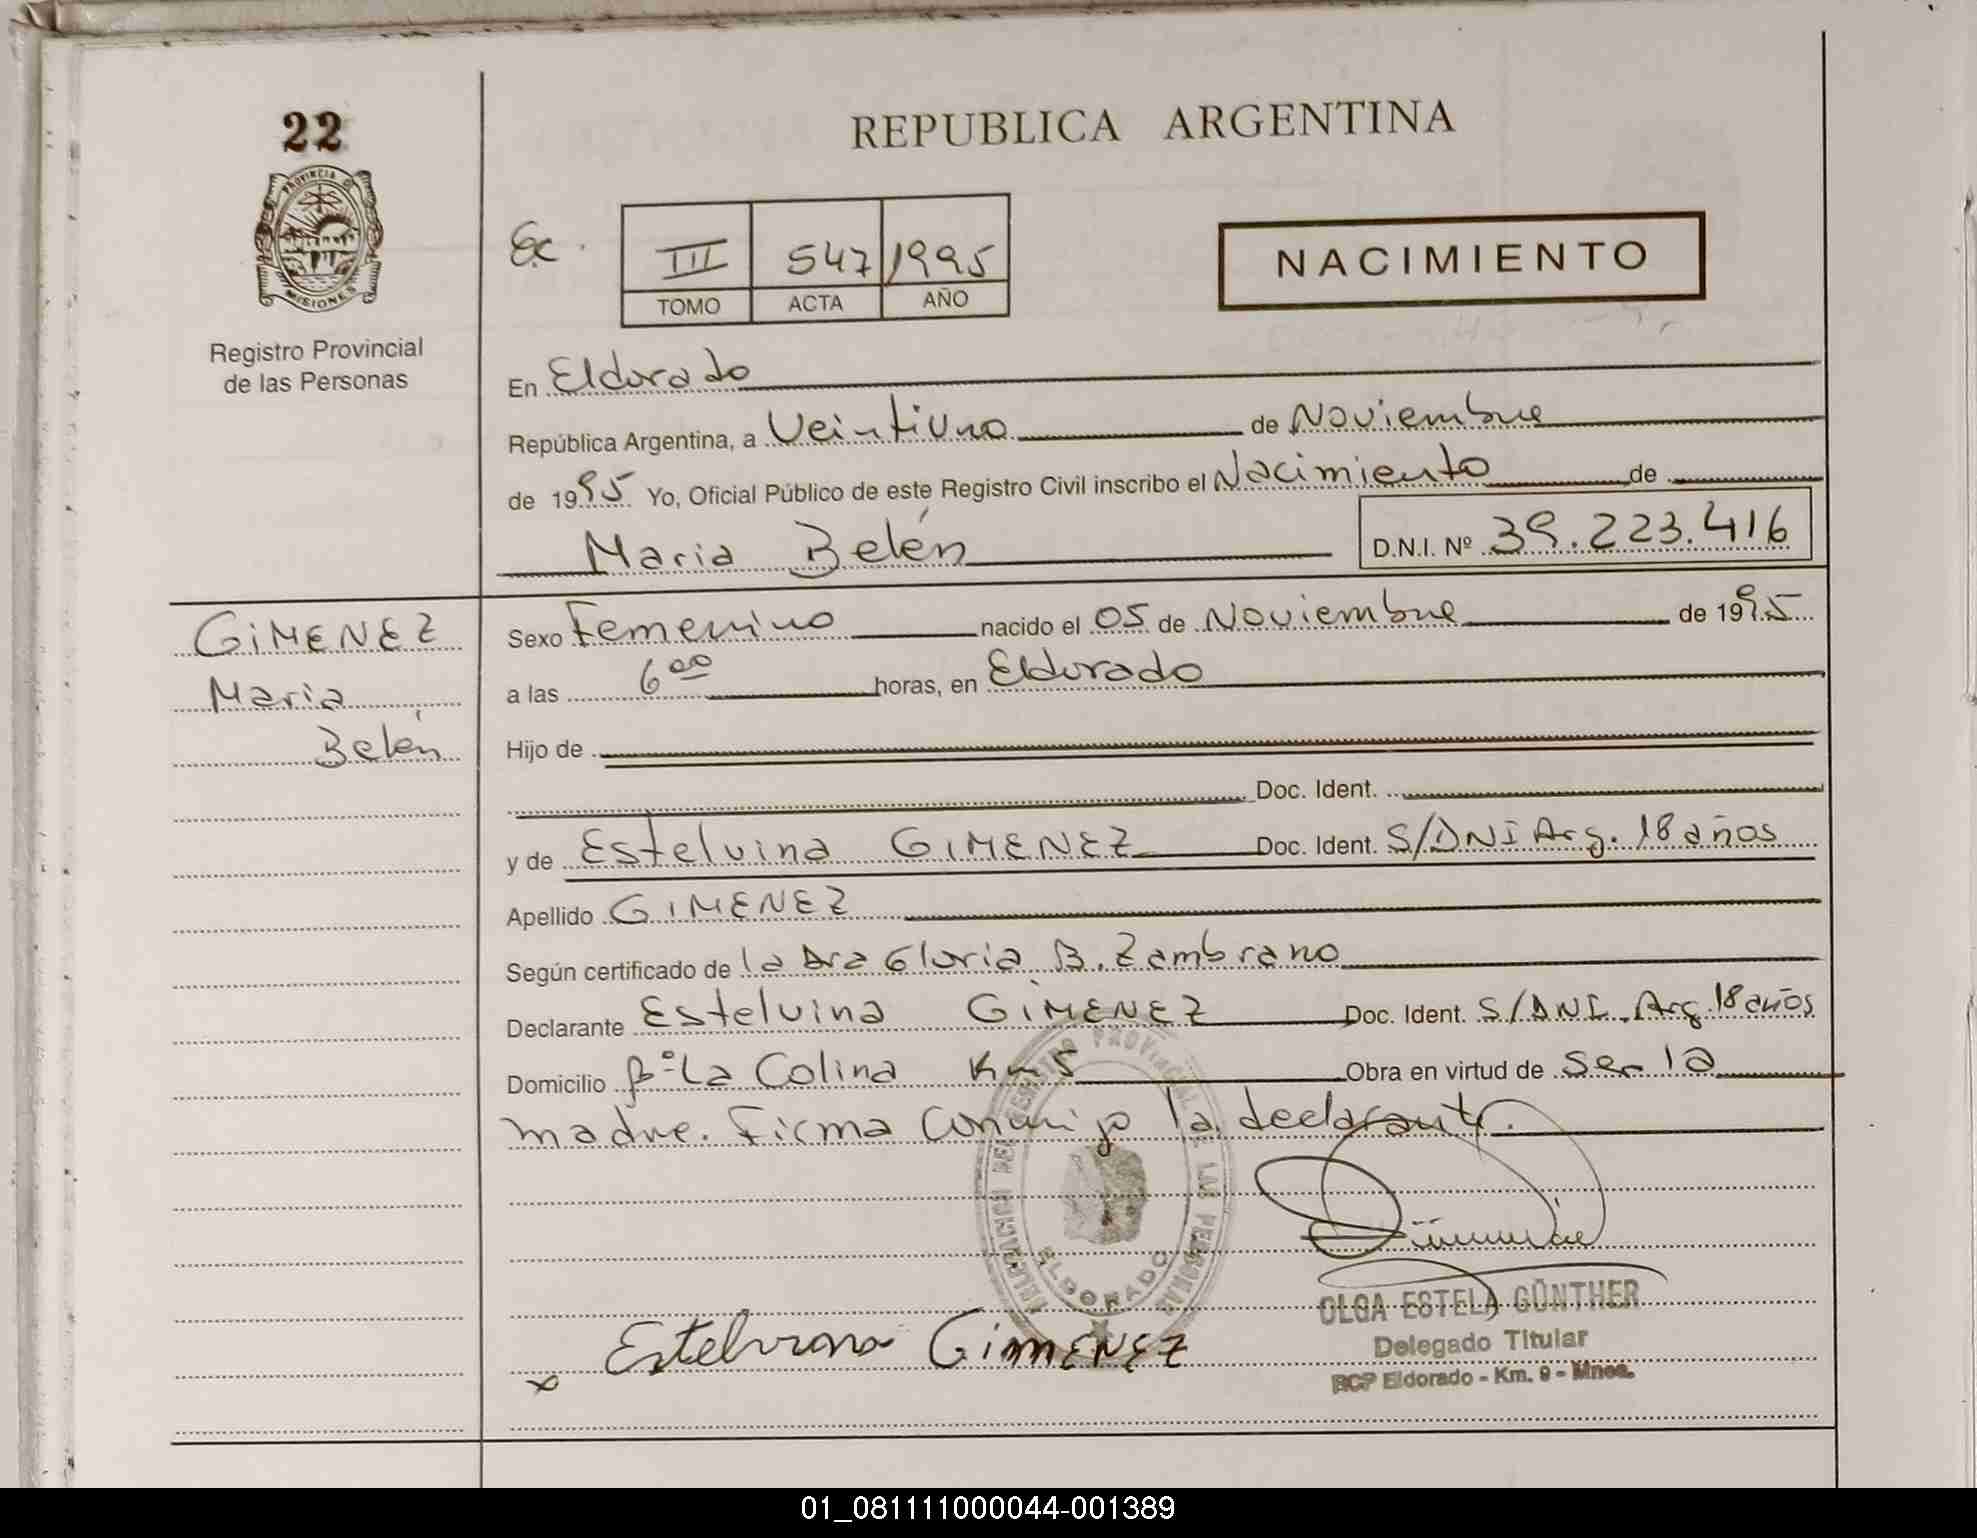 22
REPUBLICA ARGENTINA
PROVINCIA D
MISIONES
Registro Provincial
de las Personas
III 547 1995
TOMO ACTA AÑO
NACIMIENTO
En Eldorado
República Argentina, a Veintiuno de Noviembre
de 1995 Yo, Oficial Público de este Registro Civil inscribo el Nacimiento de
Maria Belén D.N.I. Nº 39.223.416
GIMENEZ
Maria
Belén
Sexo Femenino nacido el 05 de Noviembre de 1995
a las 6 00 horas, en Eldorado
Hijo de
Doc. Ident.
y de Estelvina GIMENEZ Doc. Ident. S/DNI Arg. 18 años
Apellido GIMENEZ
Según certificado de la Dra Gloria B. Zambrano
Declarante Estelvina GIMENEZ Doc. Ident. S/DNI. Arg. 18 años
Domicilio Bº La Colina Km 5 Obra en virtud de Ser la
madre. Firma Conmigo la declarante.
ELDORADO
OLGA ESTELA GÜNTHER
Delegado Titular
RCP Eldorado - Km. 9 - Mnes.
x Estelvina GimENEZ
01_081111000044-001389